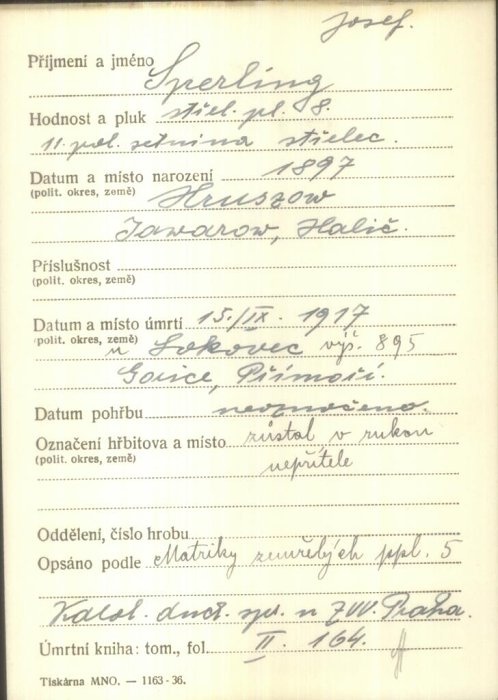 Josef.
Příjmení a jméno Sperling
Hodnost a pluk střel. pl. 8.
11. pol. setnina střelec.
Datum a místo narození 1897
(polit. okres, země) Hruszow
Jawarow, Halič.
Příslušnost
(polit. okres, země)
Datum a místo úmrtí 15./IX. 1917
(polit. okres, země) u Lokovec výš. 895
Gorice, Přímoří.
Datum pohřbu neoznačeno.
Označení hřbitova a místo zůstal v rukou
(polit. okres, země) nepřítele
Oddělení, číslo hrobu
Opsáno podle Matriky zemřelých ppl. 5
Katol. duch. spr. u ZVV. Praha.
Úmrtní kniha: tom., fol. II. 164.
Tiskárna MNO. — 1163-36.